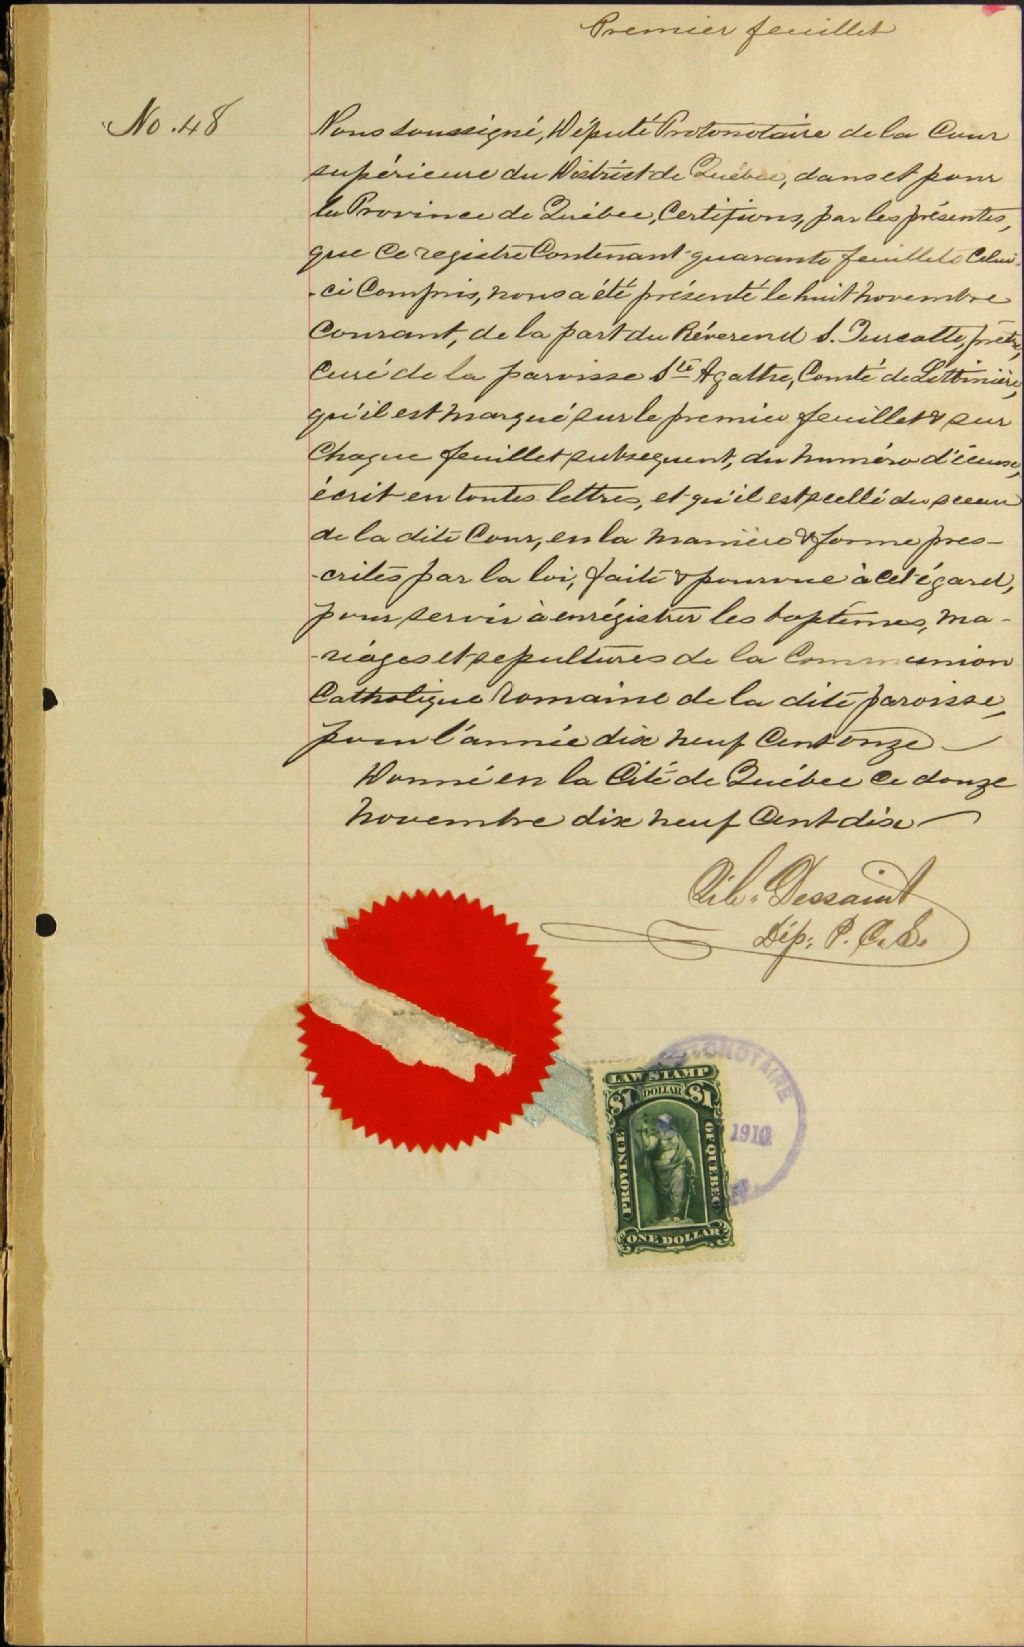 Premier feuillet
No. 48
Nous soussigné, Député Protonotaire de la Cour
supérieure du District de Québec, dans et pour
la Province de Québec, Certifions, par les présentes,
que ce registre Contenant quarante feuillets Celui-
-ci Compris, nous a été présenté le huit novembre
Courant, de la part du Révérend S. Turcotte, prêtre,
Curé de la paroisse Ste Agathe, Comté de Lotbinière,
qu'il est marqué sur le premier feuillet & sur
Chaque feuillet subséquent, du numéro d'icelui,
écrit en toutes lettres, et qu'il est scellé du sceau
de la dite Cour, en la manière & forme pres-
-crites par la loi, faite & pourvue à cet égard,
pour servir à enrégistrer les baptêmes, ma-
-riages et sepultures de la Communion
Catholique Romaine de la dite paroisse,
pour l'année dix neuf Cent onze
Donné en la Cité de Québec ce douze
novembre dix neuf Cent dix
Dessaint
Dép. P. C. S.
PROTONOTAIRE
1910
LAW STAMP
$1 DOLLAR $1
PROVINCE OF QUEBEC
ONE DOLLAR